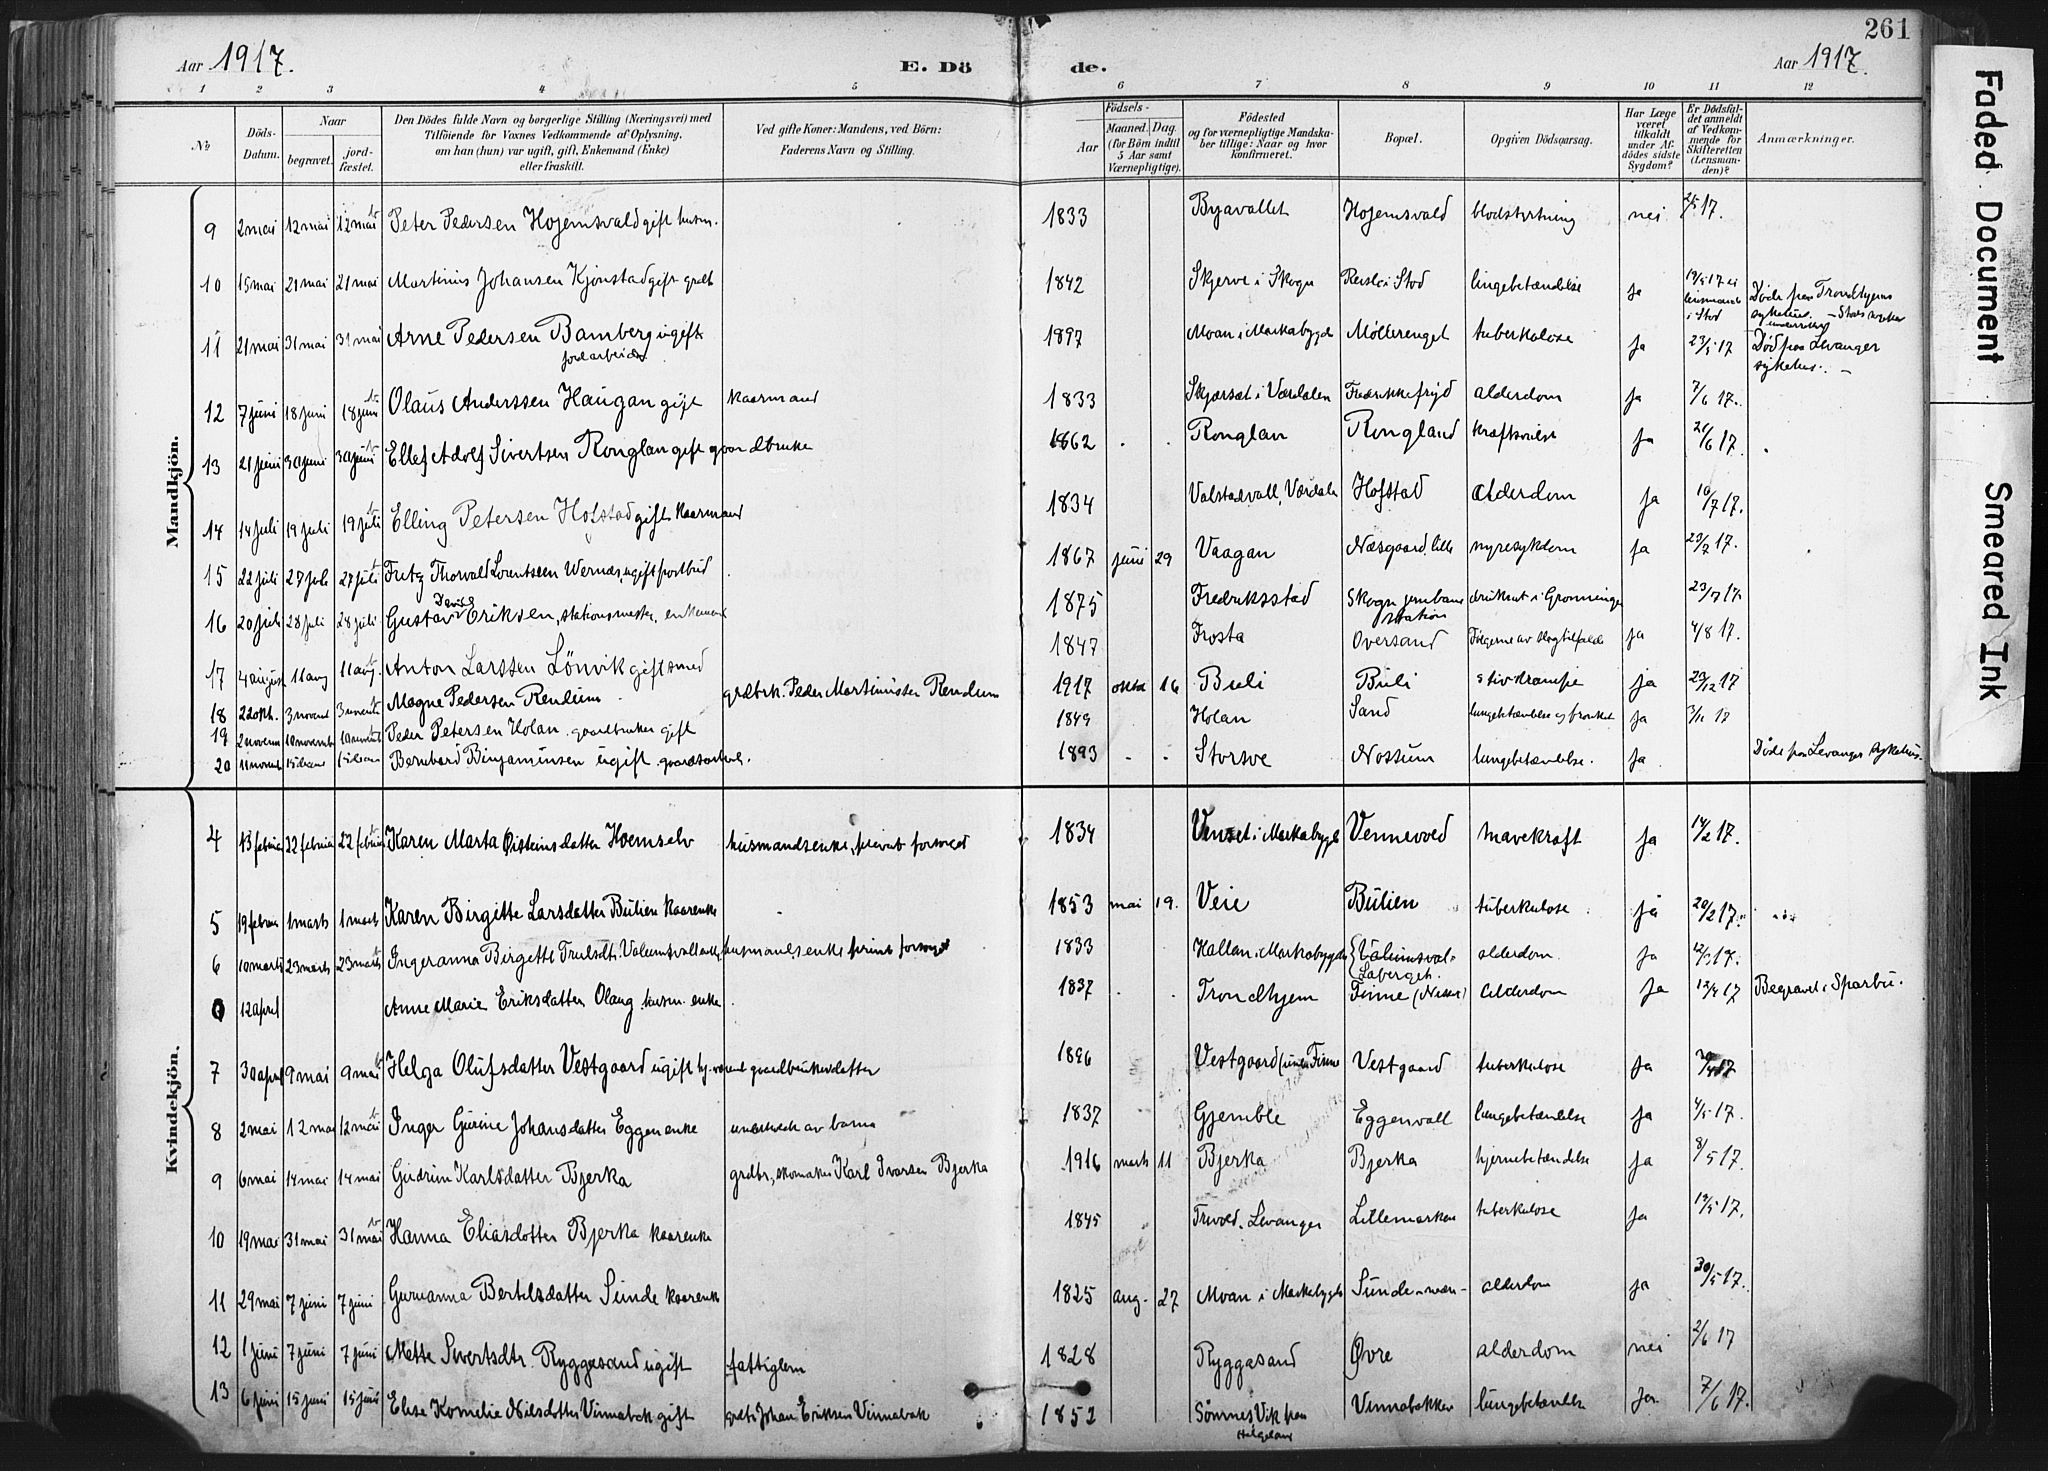 261
Aar 1917.
E. Döde.
Aar 1917.
1 2 3 4 5 6 7 8 9 10 11 12
No
Döds-Datum.
Naar
begravet.
jord-fæstet.
Den Dödes fulde Navn og borgerlige Stilling (Næringsvei) med
Tilföiende for Voxnes Vedkommende af Oplysning,
om han (hun) var ugift, gift, Enkemand (Enke)
eller fraskilt.
Ved gifte Koner: Mandens, ved Börn:
Faderens Navn og Stilling.
Födsels-
Aar
Maaned. Dag.
(for Börn indtil
5 Aar samt
Værnepligtige).
Födested
og for værnepligtige Mandska-
ber tillige: Naar og hvor
konfirmeret.
Bopæl.
Opgiven Dödsaarsag.
Har Læge
været
tilkaldt
under Af-
dödes sidste
Sygdom?
Er Dödsfal-
det anmeldt
af Vedkom-
mende for
Skifteretten
(Lensman-
den)?
Anmærkninger.
Mandkjön.
9 2 mai 12 mai 12 mai Peter Pedersen Hojemsvald gift husm. 1833 Byavallet Hojemsvald blodstyrtning nei 2/5 17.
10 15 mai 21 mai 21 mai Martinus Johansen Kjönstad gift grdb 1842 Skjerve i Skogn Reisle i Stod lungebetændelse ja 19/5 17 lensmand i Stod Döde paa Trondhjems sykehus. - Stods
11 21 mai 31 mai 31 mai Arne Pedersen Bamberg ugift jordarbeider 1897 Moan i Markabygda Möllerenget tuberkulose ja 23/5 17 Död paa Levanger sykehus. -
12 7 juni 18 juni 18 juni Olaus Anderssen Haugan gift kaarmand 1833 Skjærset i Værdalen Fredrikkefryd alderdom ja 7/6 17.
13 21 juni 30 juni 30 juni Ellef Adolf Sivertsen Ronglan gift gaardbruker 1862 Ronglan Rongland kræftsvulst ja 21/6 17.
14 14 juli 19 juli 19 juli Elling Petersen Hofstad gift kaarmand 1834 Valstadvall, Værdalen Hofstad alderdom ja 10/7 17.
15 22 juli 27 juli 27 juli Fritz Thorvald Lorentssen Wernæs, ugift postbud 1867 juni 29 Vaagan Næsgaard, lille nyresykdom ja 23/7 17.
16 20 juli 28 juli 28 juli Gustav David Eriksen, stationsmester, enkemand 1875 Fredriksstad Skogn jernbane station druknet i Gronningen 23/7 17.
17 4 august 11 aug 11 aug Anton Larssen Lönvik gift smed 1847 Frosta Oversand Følgerne av slagtilfælde ja 4/8 17.
18 22 okt. 3 novemb 3 novemb Magne Pedersen Rendum grdbrk. Peder Martinussen Rendum 1917 oktb 16 Buli Buli stivkrampe ja 29/12 17
19 2 novem 10 novemb 10 novemb Peder Petersen Holan gaardbruker gift 1849 Holan Sand lungebetændelse og bronkit ja 3/11 17
20 11 novemb Bernhard Binjaminsen ugift gaardsarbeid. 1893 Storsve Nossum lungebetændelse. ja Døde paa Levanger sykehus.
Kvindekjön.
4 13 februar 22 februar 22 februar Karen Marta Øisteinsdatter Hoemselv husmandsenke, privat forsørget 1834 Venset i Markabygda Vennevold mavekræft ja 14/2 17.
5 19 februar 1 marts 1 marts Karen Birgitte Larsdatter Bulien kaarenke 1853 mai 19. Veie Bulien tuberkulose ja 20/2 17.
6 10 marts 23 marts 23 marts Ingeranna Birgette Trulsdt. Valumsvallen husmandsenke privat forsørget 1833 Hallan i Markabygda Valumsval. Laberget. alderdom ja 12/3 17.
0 12 april Anne Marie Eriksdatter Olaug husm. enke 1837 Trondhjem Finne (Nissen) alderdom ja 12/4 17 Begravet i Sparbu.
7 30 april 9 mai 9 mai Helga Olufsdatter Vestgaard ugift gaardbrukerdatter 1896 Vestgaard under Finne Vestgaard tuberkulose ja 30/4 17
8 2 mai 12 mai 12 mai Inger Gurine Johansdatter Eggen enke underholdt av barna 1837 Gjemble Eggenvall lungebetændelse ja 4/5 17.
9 6 mai 14 mai 14 mai Gudrun Karlsdatter Bjerka grdbr., skomaker Karl Ivarsen Bjerka 1916 marts 11 Bjerka Bjerka hjernebetændelse ja 8/5 17.
10 19 mai 31 mai 31 mai Hanna Eliasdatter Bjerka kaarenke 1845 Trivold. Levanger Lillemarken tuberkulose ja 19/5 17.
11 29 mai 7 juni 7 juni Gurianna Bertelsdatter Sunde kaarenke 1825 aug. 27 Moan i Markabygda Sunde alderdom ja 30/5 17.
12 1 juni 7 juni 7 juni Mette Sivertsdtr. Ryggesand ugift fattiglem 1828 Ryggasand Øvre alderdom nei 2/6 17
13 6 juni 15 juni 15 juni Elise Kornelie Nilsdatter Vinnabak gift grdb. Johan Eriksen Vinnabak 1852 Sömnes Vik paa Helgeland Vinnabakken lungebetændelse ja. 7/6 17.
Faded Document
Smeared Ink